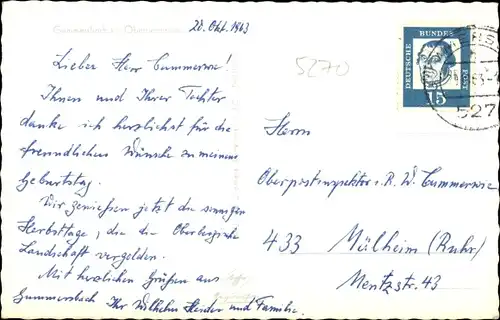 20. Okt. 1963
Lieber Herr Cummerwie!
Ihnen und Ihrer Tochter
danke ich herzlichst für die
freundlichen Wünsche zu meinem
Geburtstag.
Wir genießen jetzt die sonnigen
Herbsttage, die die Oberbergische
Landschaft vergolden.
Mit herzlichen Grüßen aus
Gummersbach Ihr Wilhelm und Familie.
5270
DEUTSCHE
BUNDES
POST
15
527
Herrn
Oberpostinspektor i. R. W. Cummerwie
433 Mülheim (Ruhr)
Mentzstr. 43